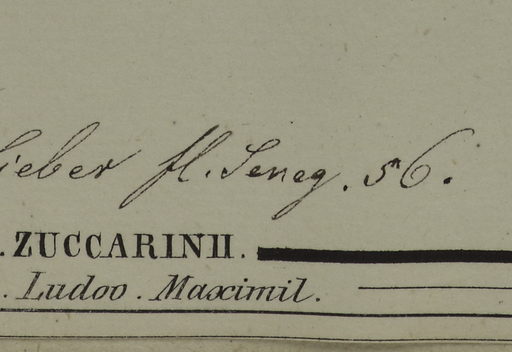 Sieber fl. Seneg. 56.
. ZUCCARINII.
. Ludov. Maximil.